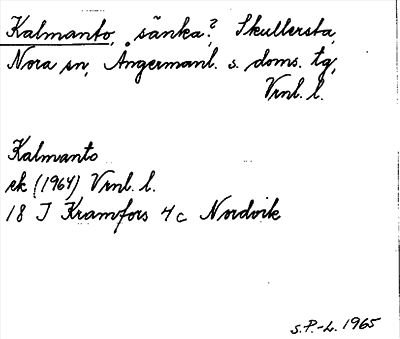 Kalmanto, sänka? Skullersta,
Nora sn, Ångermanl. s. doms. tg,
Vrnl. l.
Kalmanto
ek (1964) Vrnl. l.
18 I Kramfors 4c Nordvik
S.P.-L. 1965